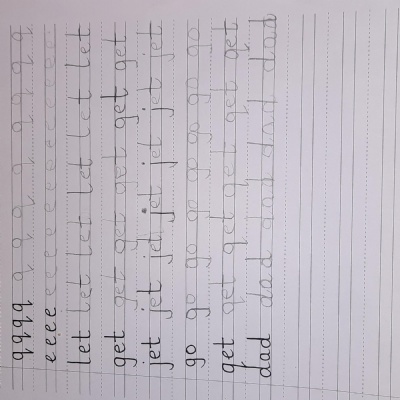 qqqq q q q q q q q q q
eeee e e e e e e e e e e e
let let let let let let let
get get get get get get
jet jet jet jet jet jet jet
go go go go go go go go
qet qet qet qet qet qet
dad dad dad dad dad